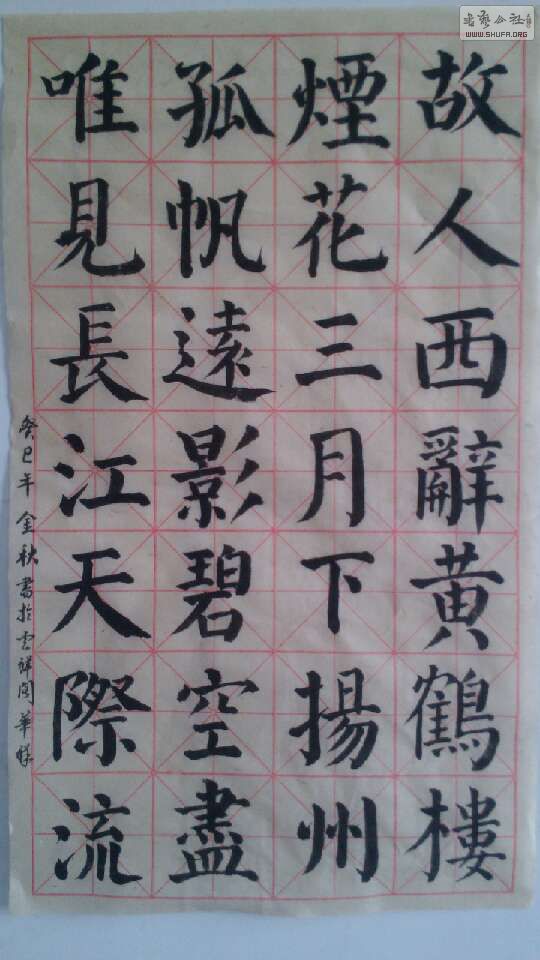 故人西辭黃鶴樓
煙花三月下揚州
孤帆遠影碧空盡
唯見長江天際流
癸巳年金秋書於雲祥閣華
书艺公社
WWW.SHUFA.ORG